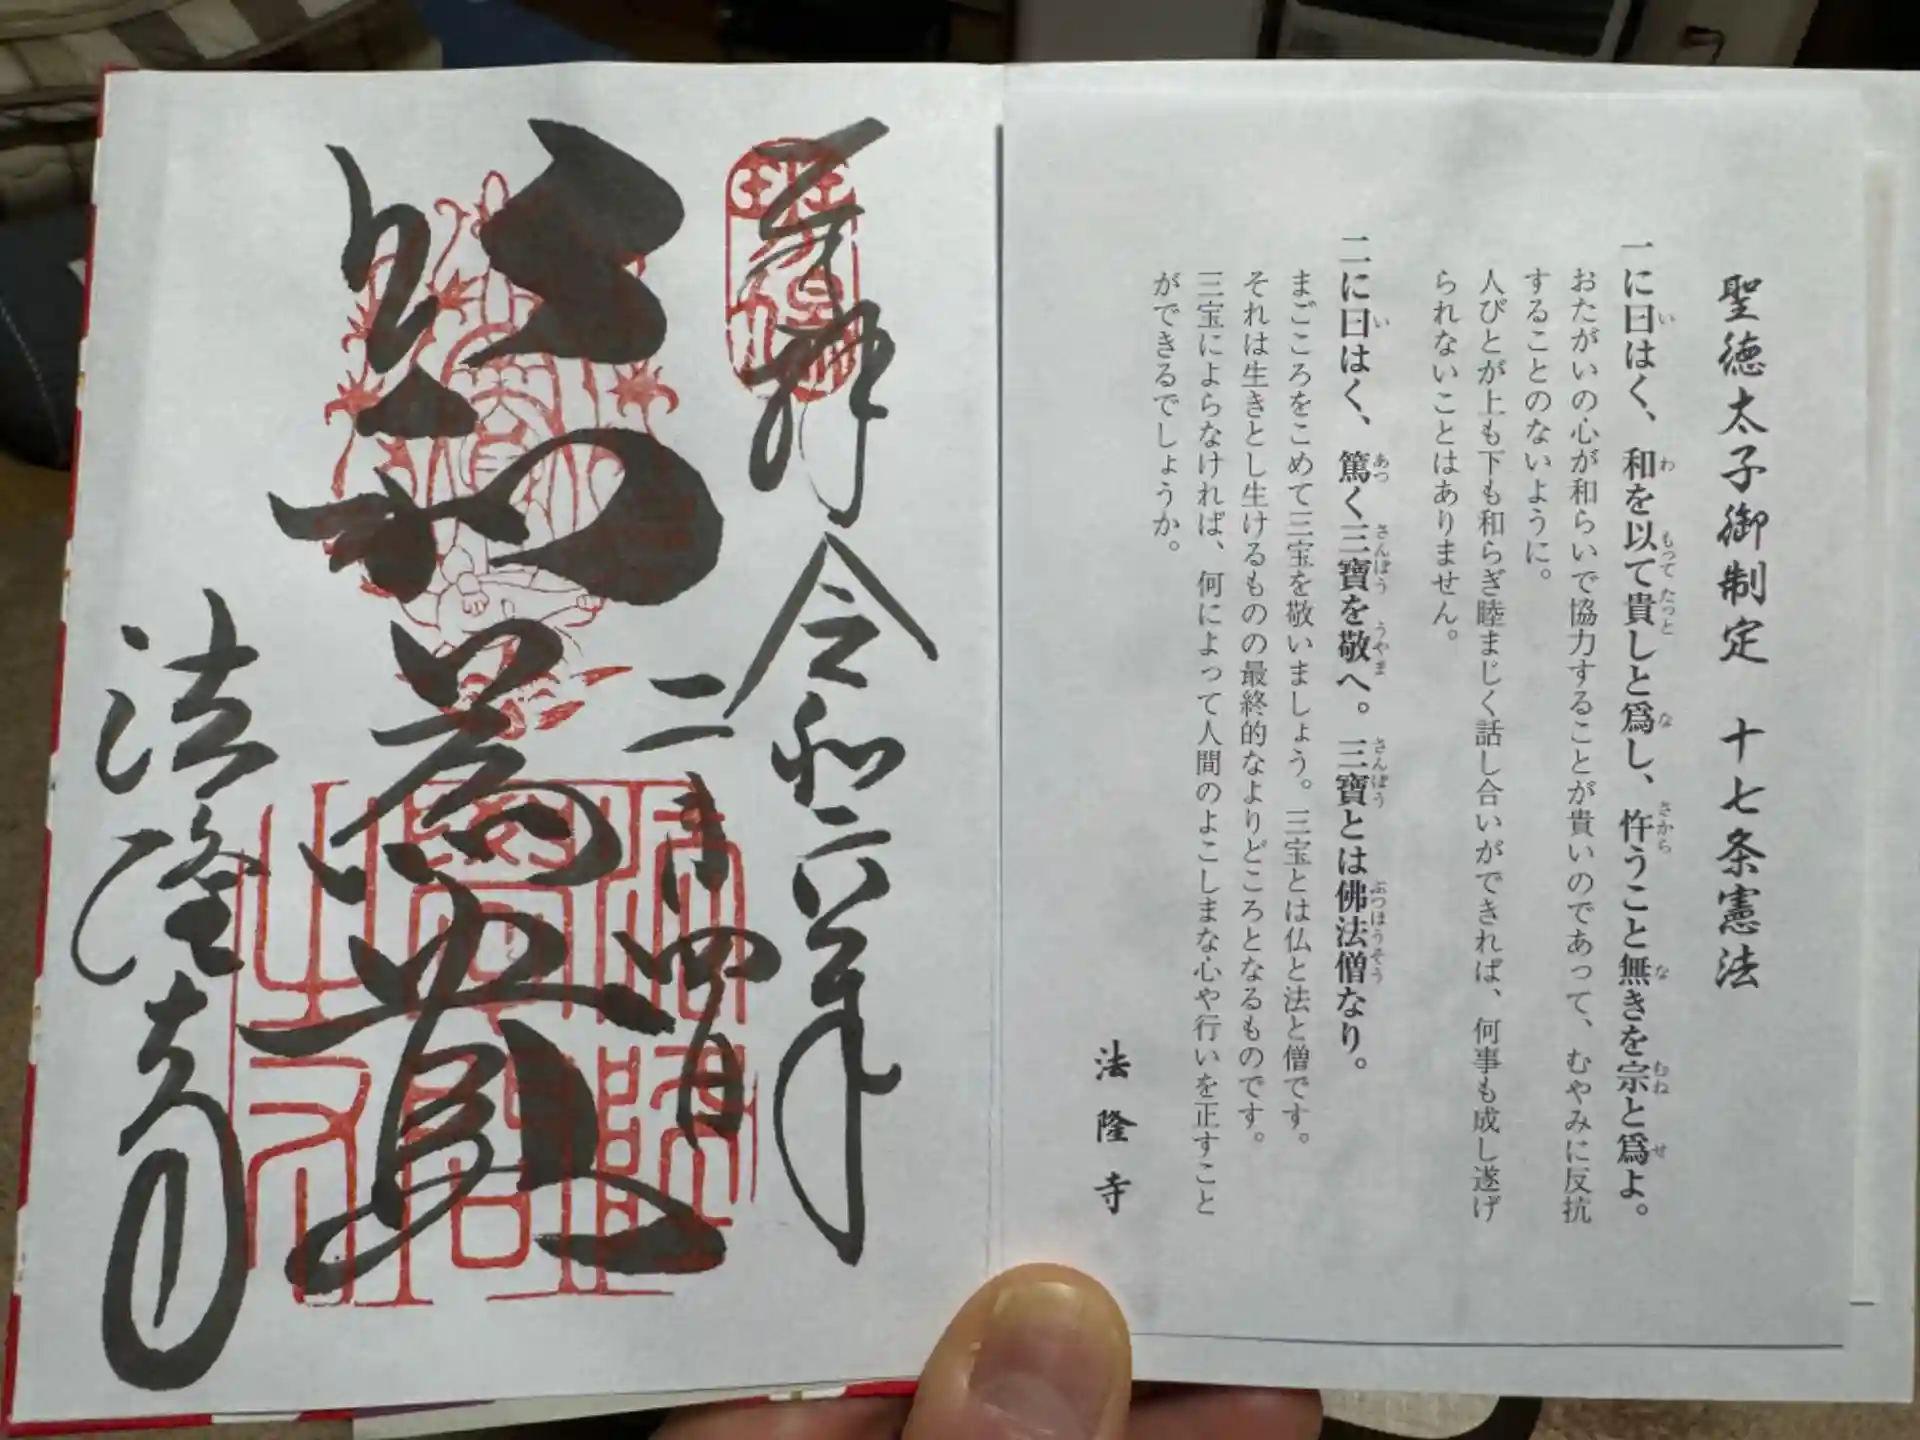 聖徳太子御制定　十七条憲法
一に曰はく、和を以て貴しと爲し、忤うこと無きを宗と爲よ。
おたがいの心が和らいで協力することが貴いのであって、むやみに反抗
することのないように。
人びとが上も下も和らぎ睦まじく話し合いができれば、何事も成し遂げ
られないことはありません。
二に曰はく、篤く三寶を敬へ。三寶とは佛法僧なり。
まごころをこめて三宝を敬いましょう。三宝とは仏と法と僧です。
それは生きとし生けるものの最終的なよりどころとなるものです。
三宝によらなければ、何によって人間のよこしまな心や行いを正すこと
ができるでしょうか。
法隆寺
奉拝　令和六年
二月四日
以和為貴
法隆寺